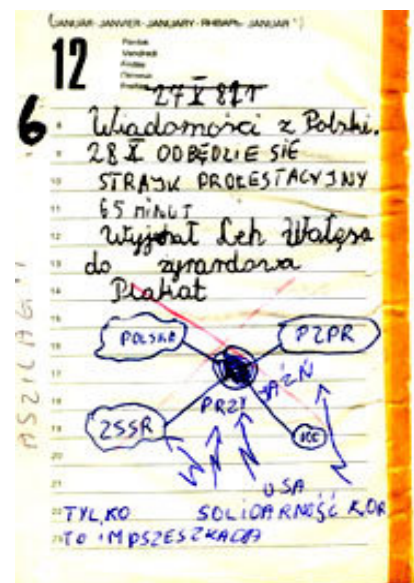 JANUAR - JANVIER - JANUARY - ЯНВАРЬ - JANUAR
12
Piątek
Vendredi
6
27 X 81r
Wiadomości z Polski.
28 X ODBĘDZIE SIĘ
STRAJK PROLESTACYJNY
65 MINUT
Wyjechał Leh Wałęsa
do żyrardowa
Plakat
POLSKA
PZPR
PRZY
JAŹŃ
ZSSR
USA
TYLKO SOLIDARNOŚĆ KOR
TO IM PSZESZKADA